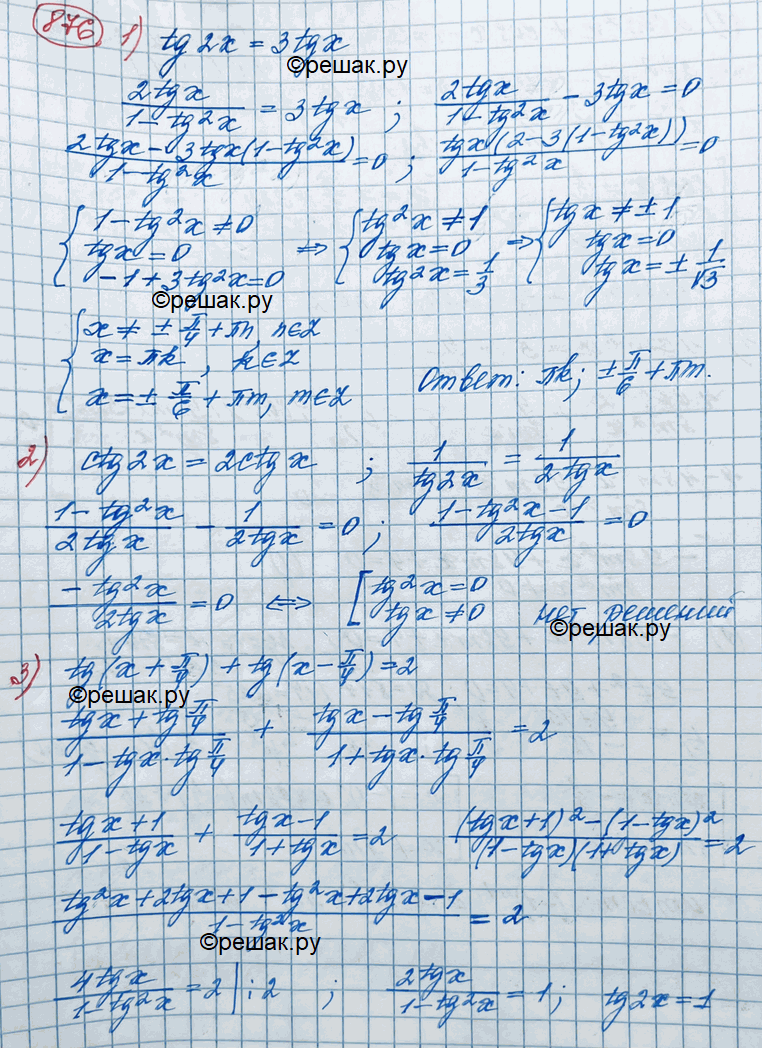 876 1) tg 2x = 3tgx
©решак.ру
2tgx/(1-tg²x) = 3tgx ; 2tgx/(1-tg²x) - 3tgx = 0
(2tgx - 3tgx(1-tg²x))/(1-tg²x) = 0 ; tgx(2-3(1-tg²x))/(1-tg²x) = 0
{ 1-tg²x ≠ 0 ⇒ { tg²x ≠ 1 ⇒ { tgx ≠ ± 1
tgx = 0 tgx = 0 tgx = 0
-1+3tg²x = 0 tg²x = 1/3 tgx = ± 1/√3
©решак.ру
{ x ≠ ± π/4 + πn, n∈Z
x = πk, k∈Z
x = ± π/6 + πm, m∈Z Ответ: πk; ± π/6 + πm.
2) ctg 2x = 2ctgx ; 1/tg2x = 1/2tgx
(1-tg²x)/2tgx - 1/2tgx = 0 ; (1-tg²x-1)/2tgx = 0
-tg²x/2tgx = 0 ⇔ [ tg²x = 0
tgx ≠ 0 нет решений
©решак.ру
3) tg(x + π/4) + tg(x - π/4) = 2
©решак.ру
(tgx + tg π/4)/(1 - tgx · tg π/4) + (tgx - tg π/4)/(1 + tgx · tg π/4) = 2
(tgx + 1)/(1 - tgx) + (tgx - 1)/(1 + tgx) = 2 ((tgx+1)² - (1-tgx)²)/((1-tgx)(1+tgx)) = 2
(tg²x + 2tgx + 1 - tg²x + 2tgx - 1)/(1-tg²x) = 2
©решак.ру
4tgx/(1-tg²x) = 2 | : 2 ; 2tgx/(1-tg²x) = 1 ; tg2x = 1